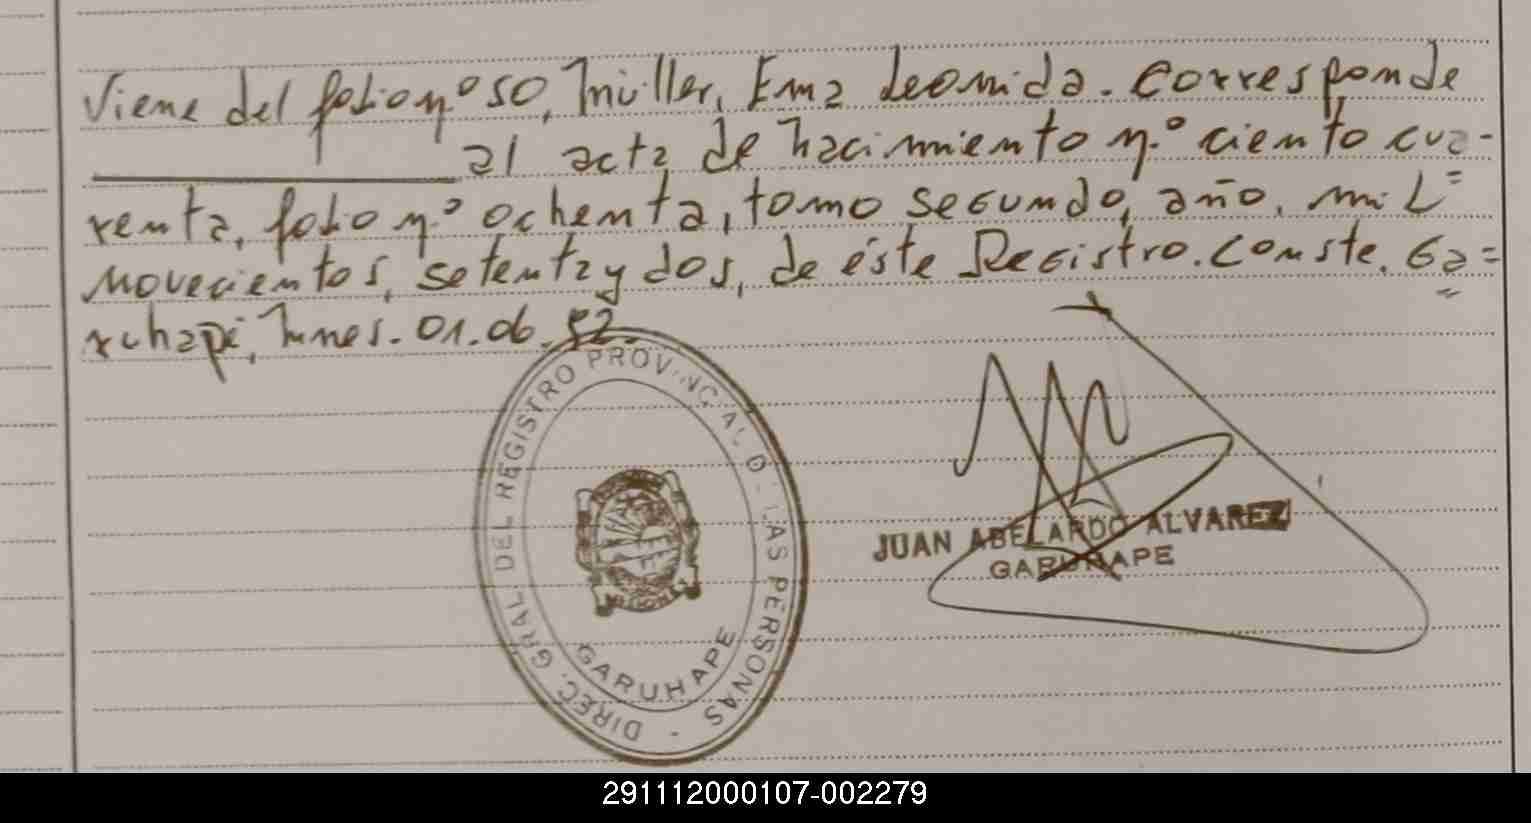 Viene del folio n.º 50, Müller, Ema Leonida. Corresponde
al acta de nacimiento n.º ciento cua-
renta, folio n.º ochenta, tomo segundo, año, mil=
novecientos, setenta y dos, de éste Registro. Conste. Ga=
ruhapé, lunes. 01.06.92.
DIREC. GRAL. DEL REGISTRO PROVINCIAL DE LAS PERSONAS -
GARUHAPE
JUAN ABELARDO ALVAREZ
GARUHAPE
291112000107-002279